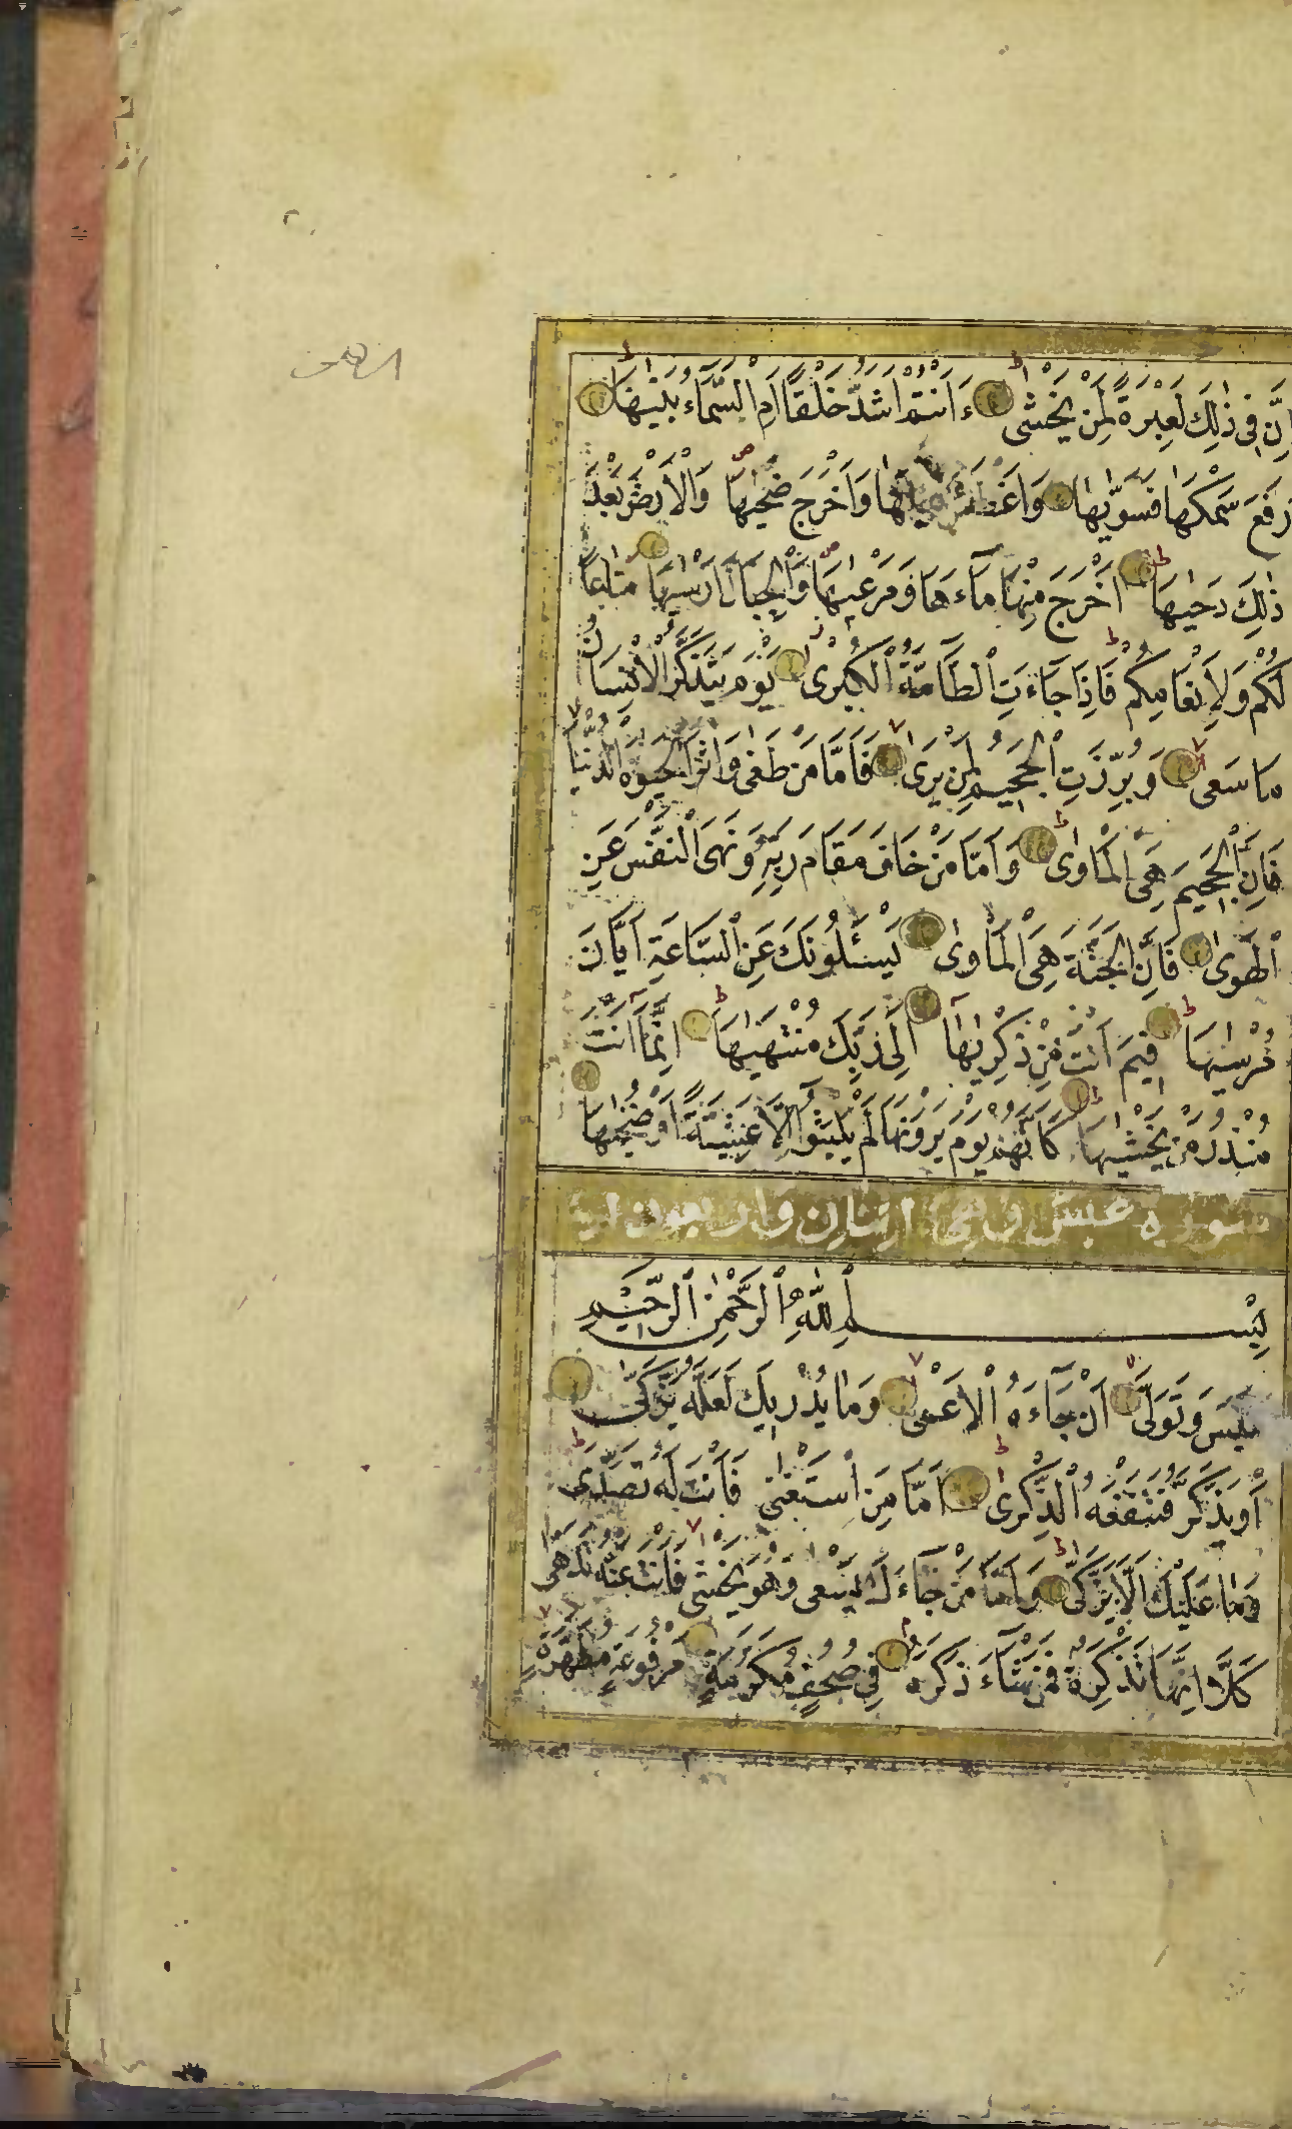 اِنَّ فِی ذٰلِكَ لَعِبْرَةً لِمَنْ یَخْشٰی ءَاَنْتُمْ اَشَدُّ خَلْقًا اَمِ السَّمَآءُ بَنٰیهَا
رَفَعَ سَمْكَهَا فَسَوّٰیهَا وَاَغْطَشَ لَیْلَهَا وَاَخْرَجَ ضُحٰیهَا وَالْاَرْضَ بَعْدَ
ذٰلِكَ دَحٰیهَا اَخْرَجَ مِنْهَا مَآءَهَا وَمَرْعٰیهَا وَالْجِبَالَ اَرْسٰیهَا مَتَاعًا
لَكُمْ وَلِاَنْعَامِكُمْ فَاِذَا جَآءَتِ الطَّآمَّةُ الْكُبْرٰی یَوْمَ یَتَذَكَّرُ الْاِنْسَانُ
مَا سَعٰی وَبُرِّزَتِ الْجَحِیمُ لِمَنْ یَرٰی فَاَمَّا مَنْ طَغٰی وَاٰثَرَ الْحَیٰوةَ الدُّنْیَا
فَاِنَّ الْجَحِیمَ هِیَ الْمَاْوٰی وَاَمَّا مَنْ خَافَ مَقَامَ رَبِّهٖ وَنَهَی النَّفْسَ عَنِ
الْهَوٰی فَاِنَّ الْجَنَّةَ هِیَ الْمَاْوٰی یَسْـَٔلُونَكَ عَنِ السَّاعَةِ اَیَّانَ
مُرْسٰیهَا فِیمَ اَنْتَ مِنْ ذِكْرٰیهَا اِلٰی رَبِّكَ مُنْتَهٰیهَا اِنَّمَا اَنْتَ
مُنْذِرُ مَنْ یَخْشٰیهَا كَاَنَّهُمْ یَوْمَ یَرَوْنَهَا لَمْ یَلْبَثُوا اِلَّا عَشِیَّةً اَوْ ضُحٰیهَا
سوره عبس وهی اثنان واربعون ایة
بِسْمِ اللّٰهِ الرَّحْمٰنِ الرَّحِیمِ
عَبَسَ وَتَوَلّٰی اَنْ جَآءَهُ الْاَعْمٰی وَمَا یُدْرِیكَ لَعَلَّهُ یَزَّكّٰی
اَوْ یَذَّكَّرُ فَتَنْفَعَهُ الذِّكْرٰی اَمَّا مَنِ اسْتَغْنٰی فَاَنْتَ لَهُ تَصَدّٰی
وَمَا عَلَیْكَ اَلَّا یَزَّكّٰی وَاَمَّا مَنْ جَآءَكَ یَسْعٰی وَهُوَ یَخْشٰی فَاَنْتَ عَنْهُ تَلَهّٰی
كَلَّا اِنَّهَا تَذْكِرَةٌ فَمَنْ شَآءَ ذَكَرَهُ فِی صُحُفٍ مُكَرَّمَةٍ مَرْفُوعَةٍ مُطَهَّرَةٍ